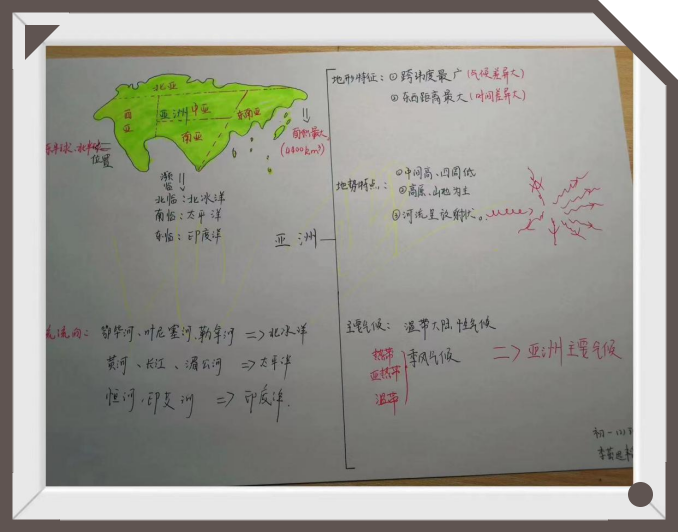 北亚
西亚
亚洲
中亚
东南亚
南亚
面积最大
(4400km²)
位置
濒临
北临:北冰洋
南临:太平洋
东临:印度洋
亚洲
地形特征:①跨纬度最广(气候差异大)
②东西距离最大(时间差异大)
地势特点:①中间高、四周低
②高原、山地为主
③河流呈放射状。
鄂毕河、叶尼塞河、勒拿河 => 北冰洋
黄河、长江、湄公河 => 太平洋
恒河、印度河 => 印度洋.
主要气候:温带大陆性气候
热带
亚热带
温带
季风气候
=> 亚洲主要气候